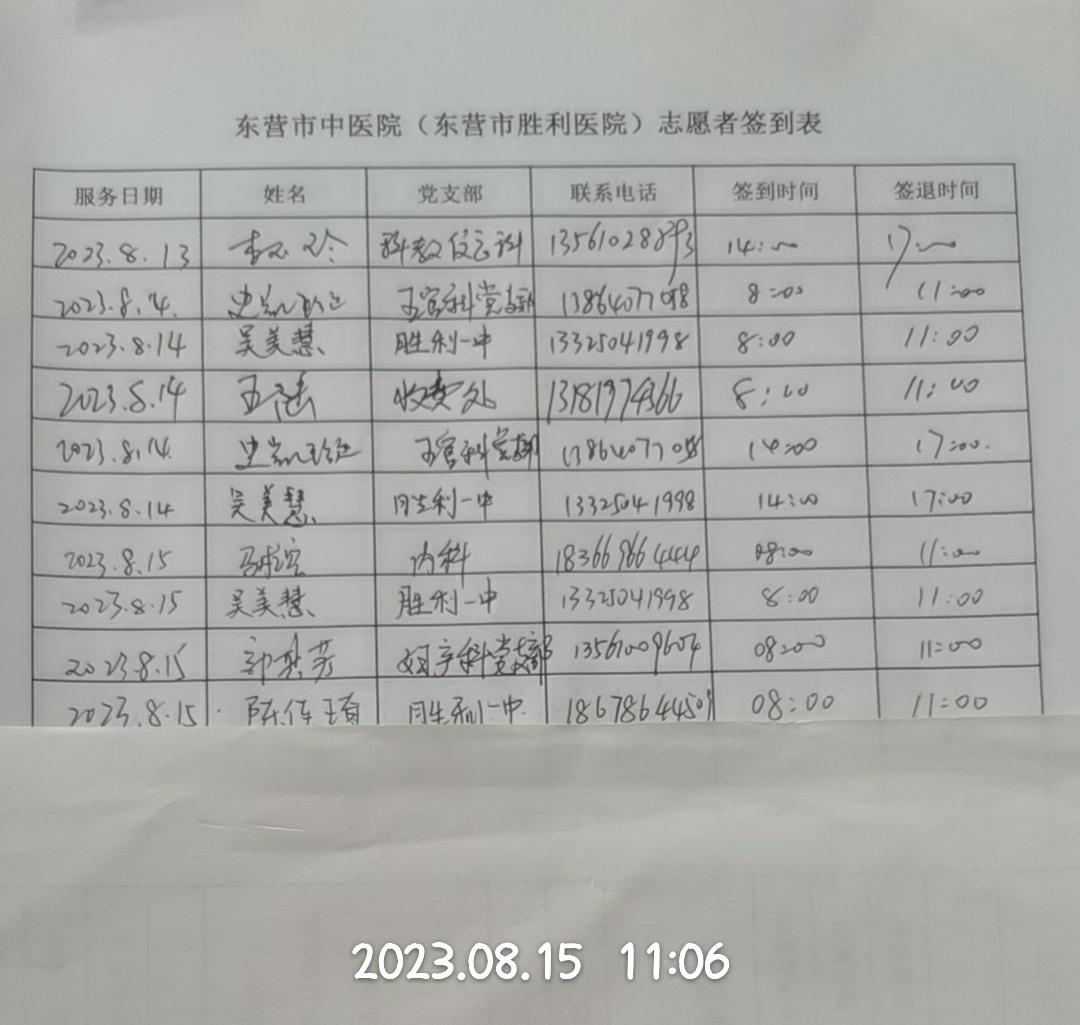 东营市中医院（东营市胜利医院）志愿者签到表
服务日期 姓名 党支部 联系电话 签到时间 签退时间
2023.8.13 科教 14:00 17:00
2023.8.14. 党支部 8:00 11:00
2023.8.14 吴美慧 胜利一中 13325041998 8:00 11:00
2023.8.14 收费处 13181974366 8:00 11:00
2023.8.14. 党支部 14:00 17:00.
2023.8.14 吴美慧 胜利一中 13325041998 14:00 17:00
2023.8.15 内科 18366966444 08:00 11:00
2023.8.15 吴美慧 胜利一中 13325041998 8:00 11:00
2023.8.15 妇产科党支部 13561009604 08:00 11:00
2023.8.15. 胜利一中 08:00 11:00
2023.08.15 11:06